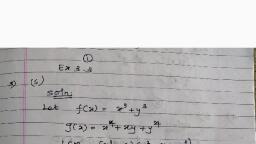 ①
Ex 3.3
3) (5)
Soln:
Let f(x) = x³ + y³
g(x) = x⁴ + xy + y⁴